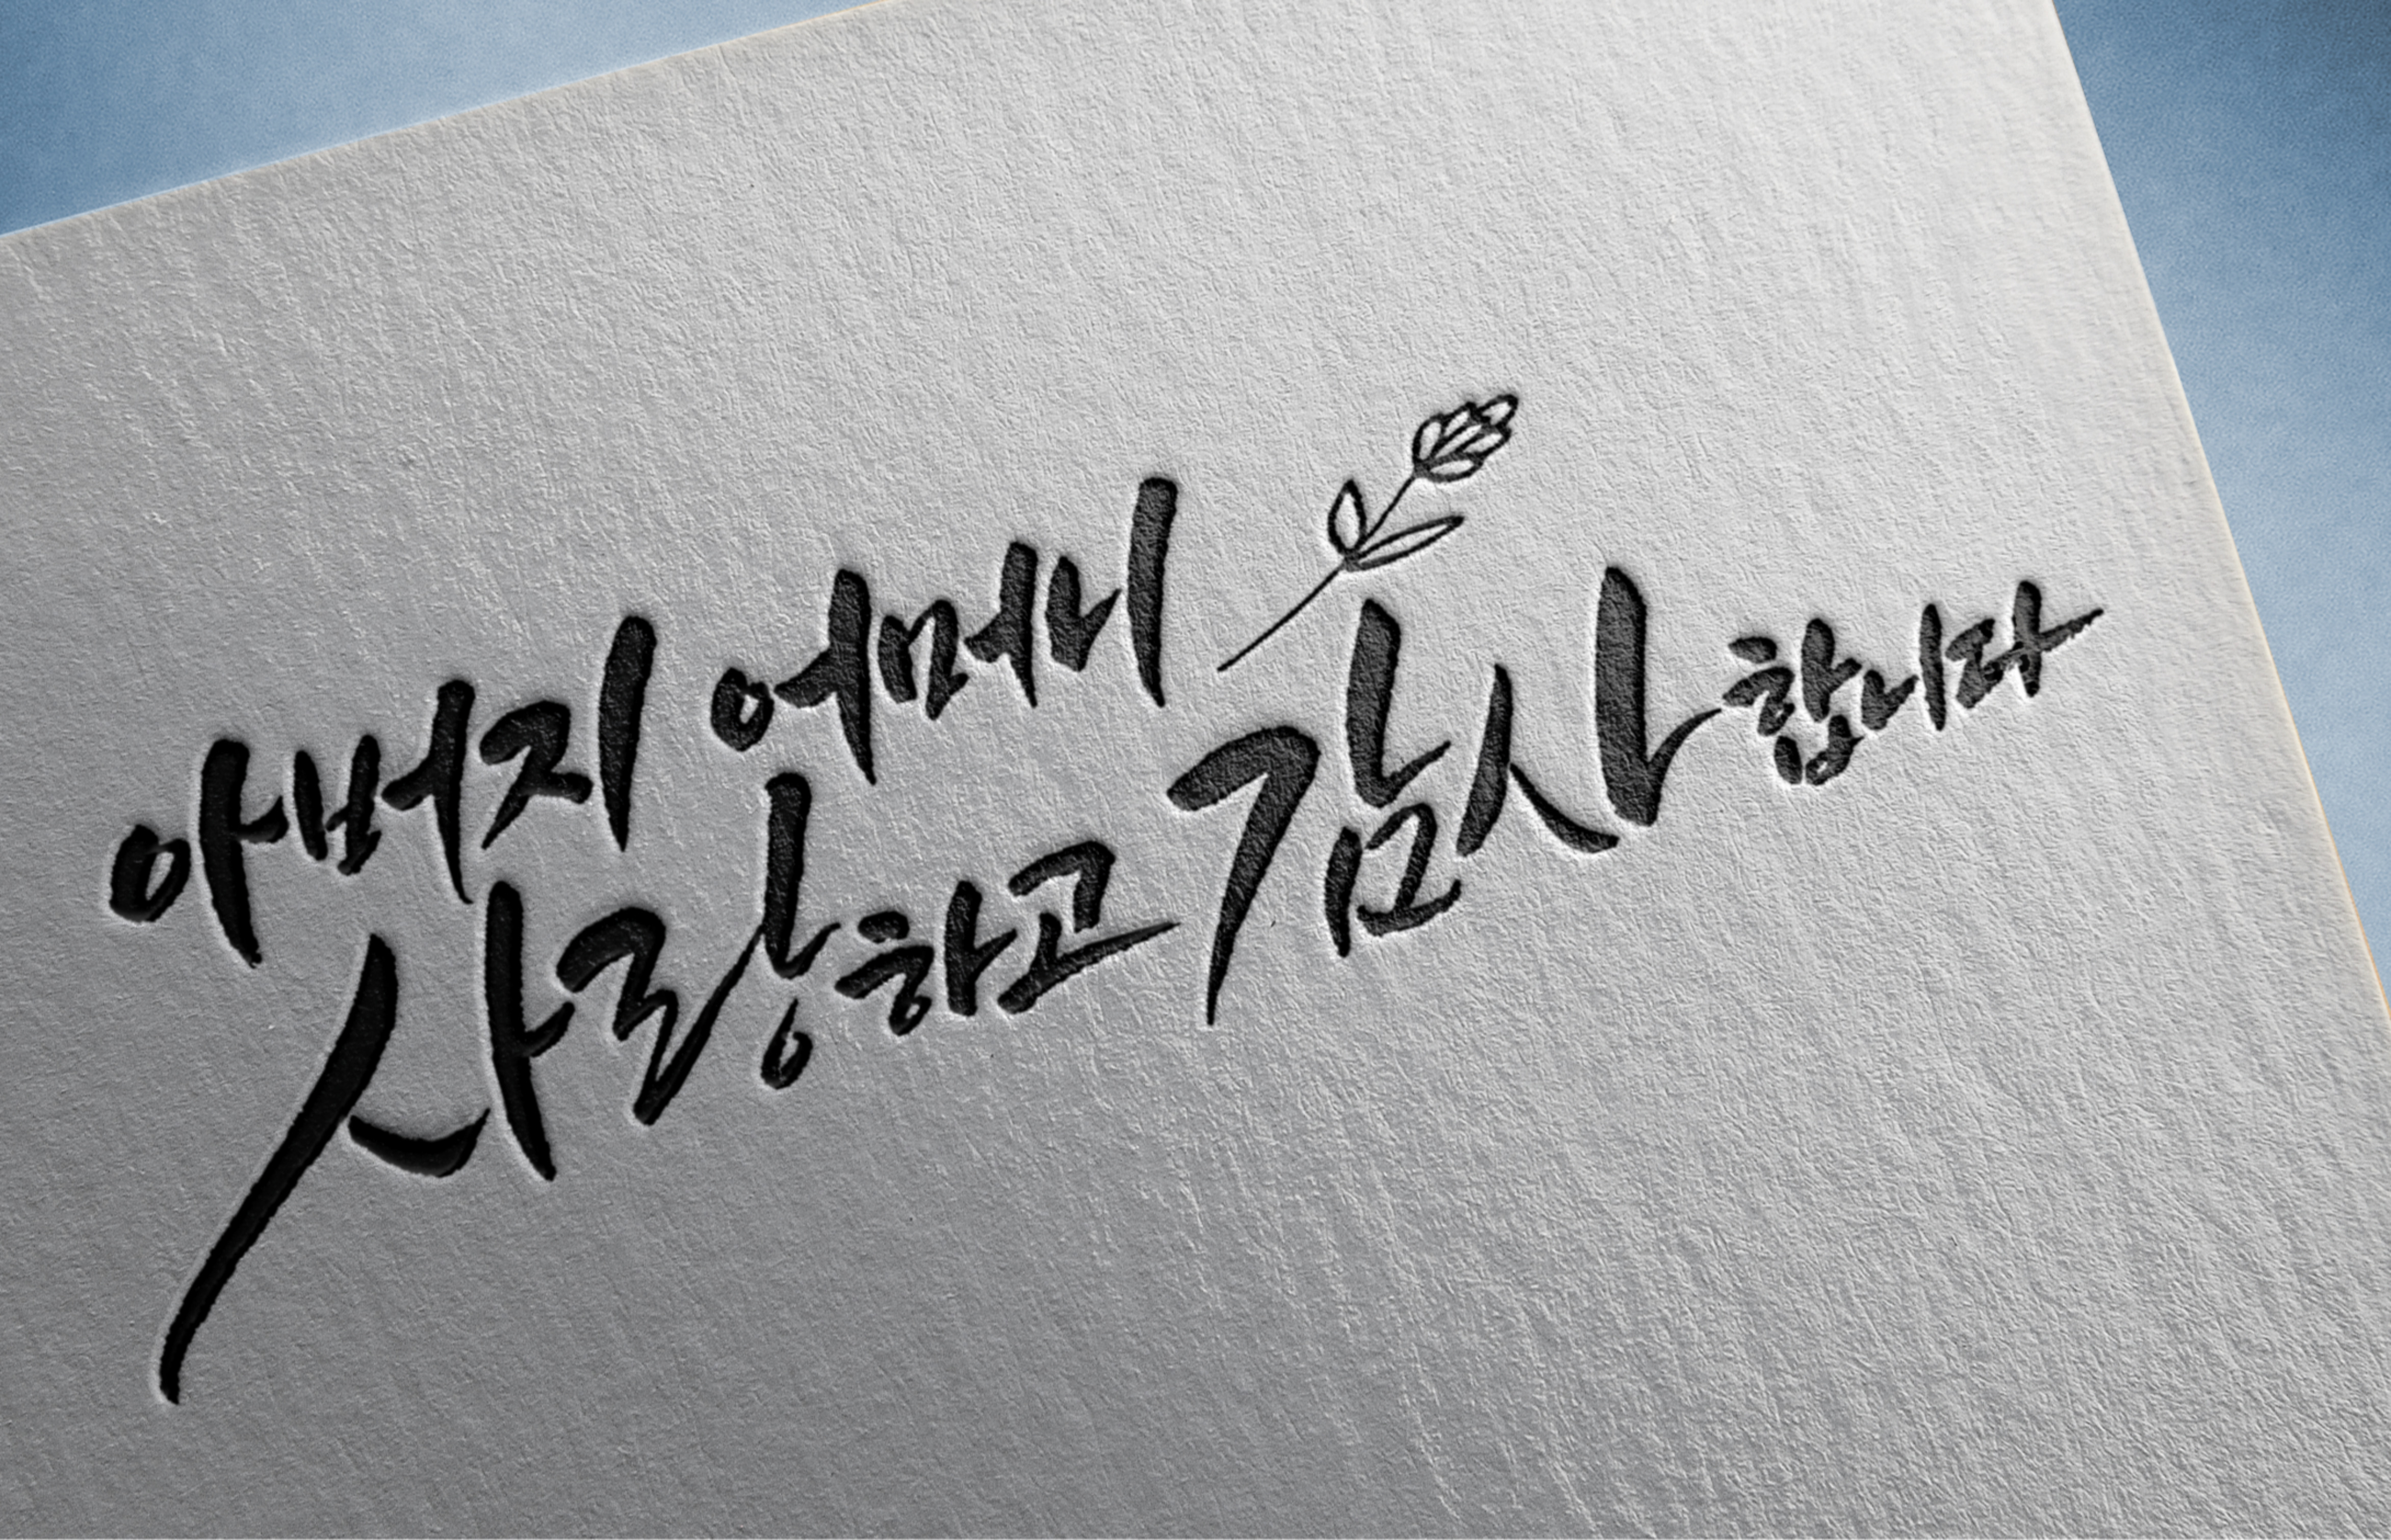 아버지 어머니
사랑하고 감사합니다